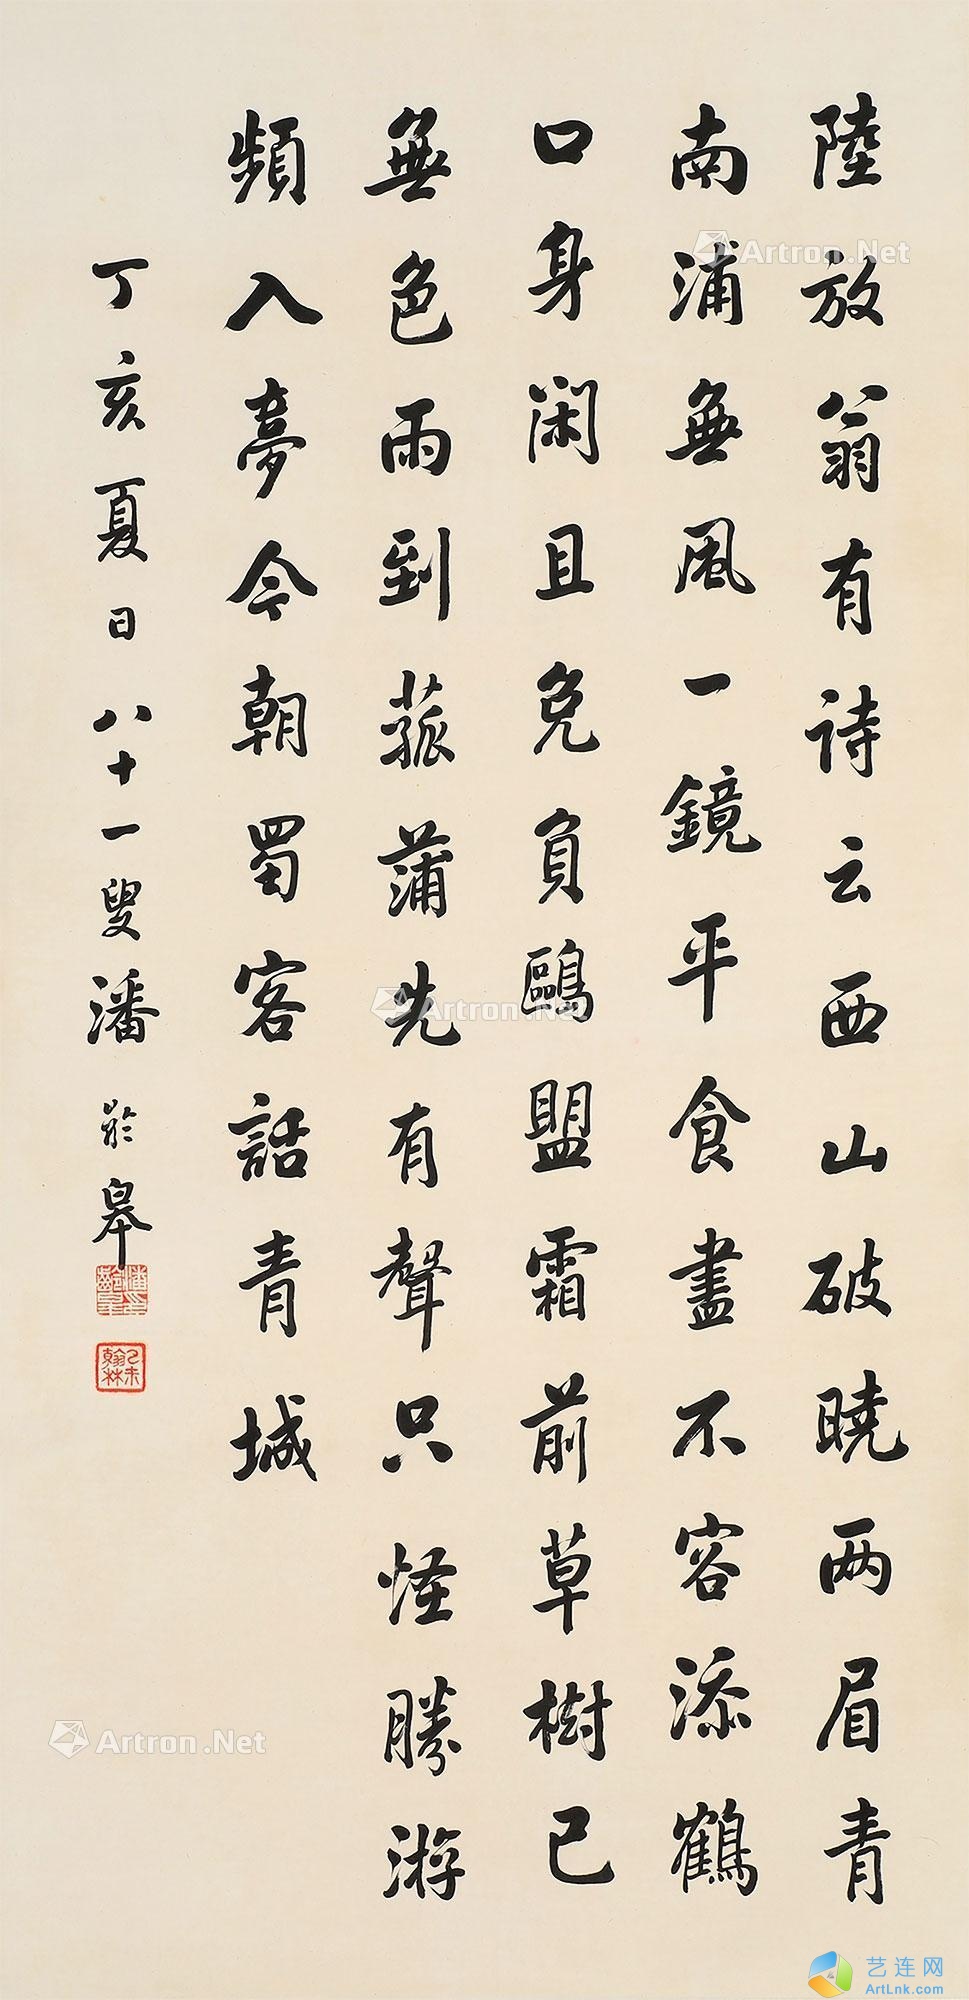 陸放翁有詩云西山破曉两眉青
南浦無風一鏡平食盡不容添鶴
口身閑且免負鷗盟霜前草樹已
無色雨到菰蒲先有聲只怪勝游
頻入夢今朝蜀客話青城
丁亥夏日八十一叟潘龄皋
潘龄皋印
乙未翰林
Artron.Net
Artron.Net
Artron.Net
艺连网
ArtLnk.com